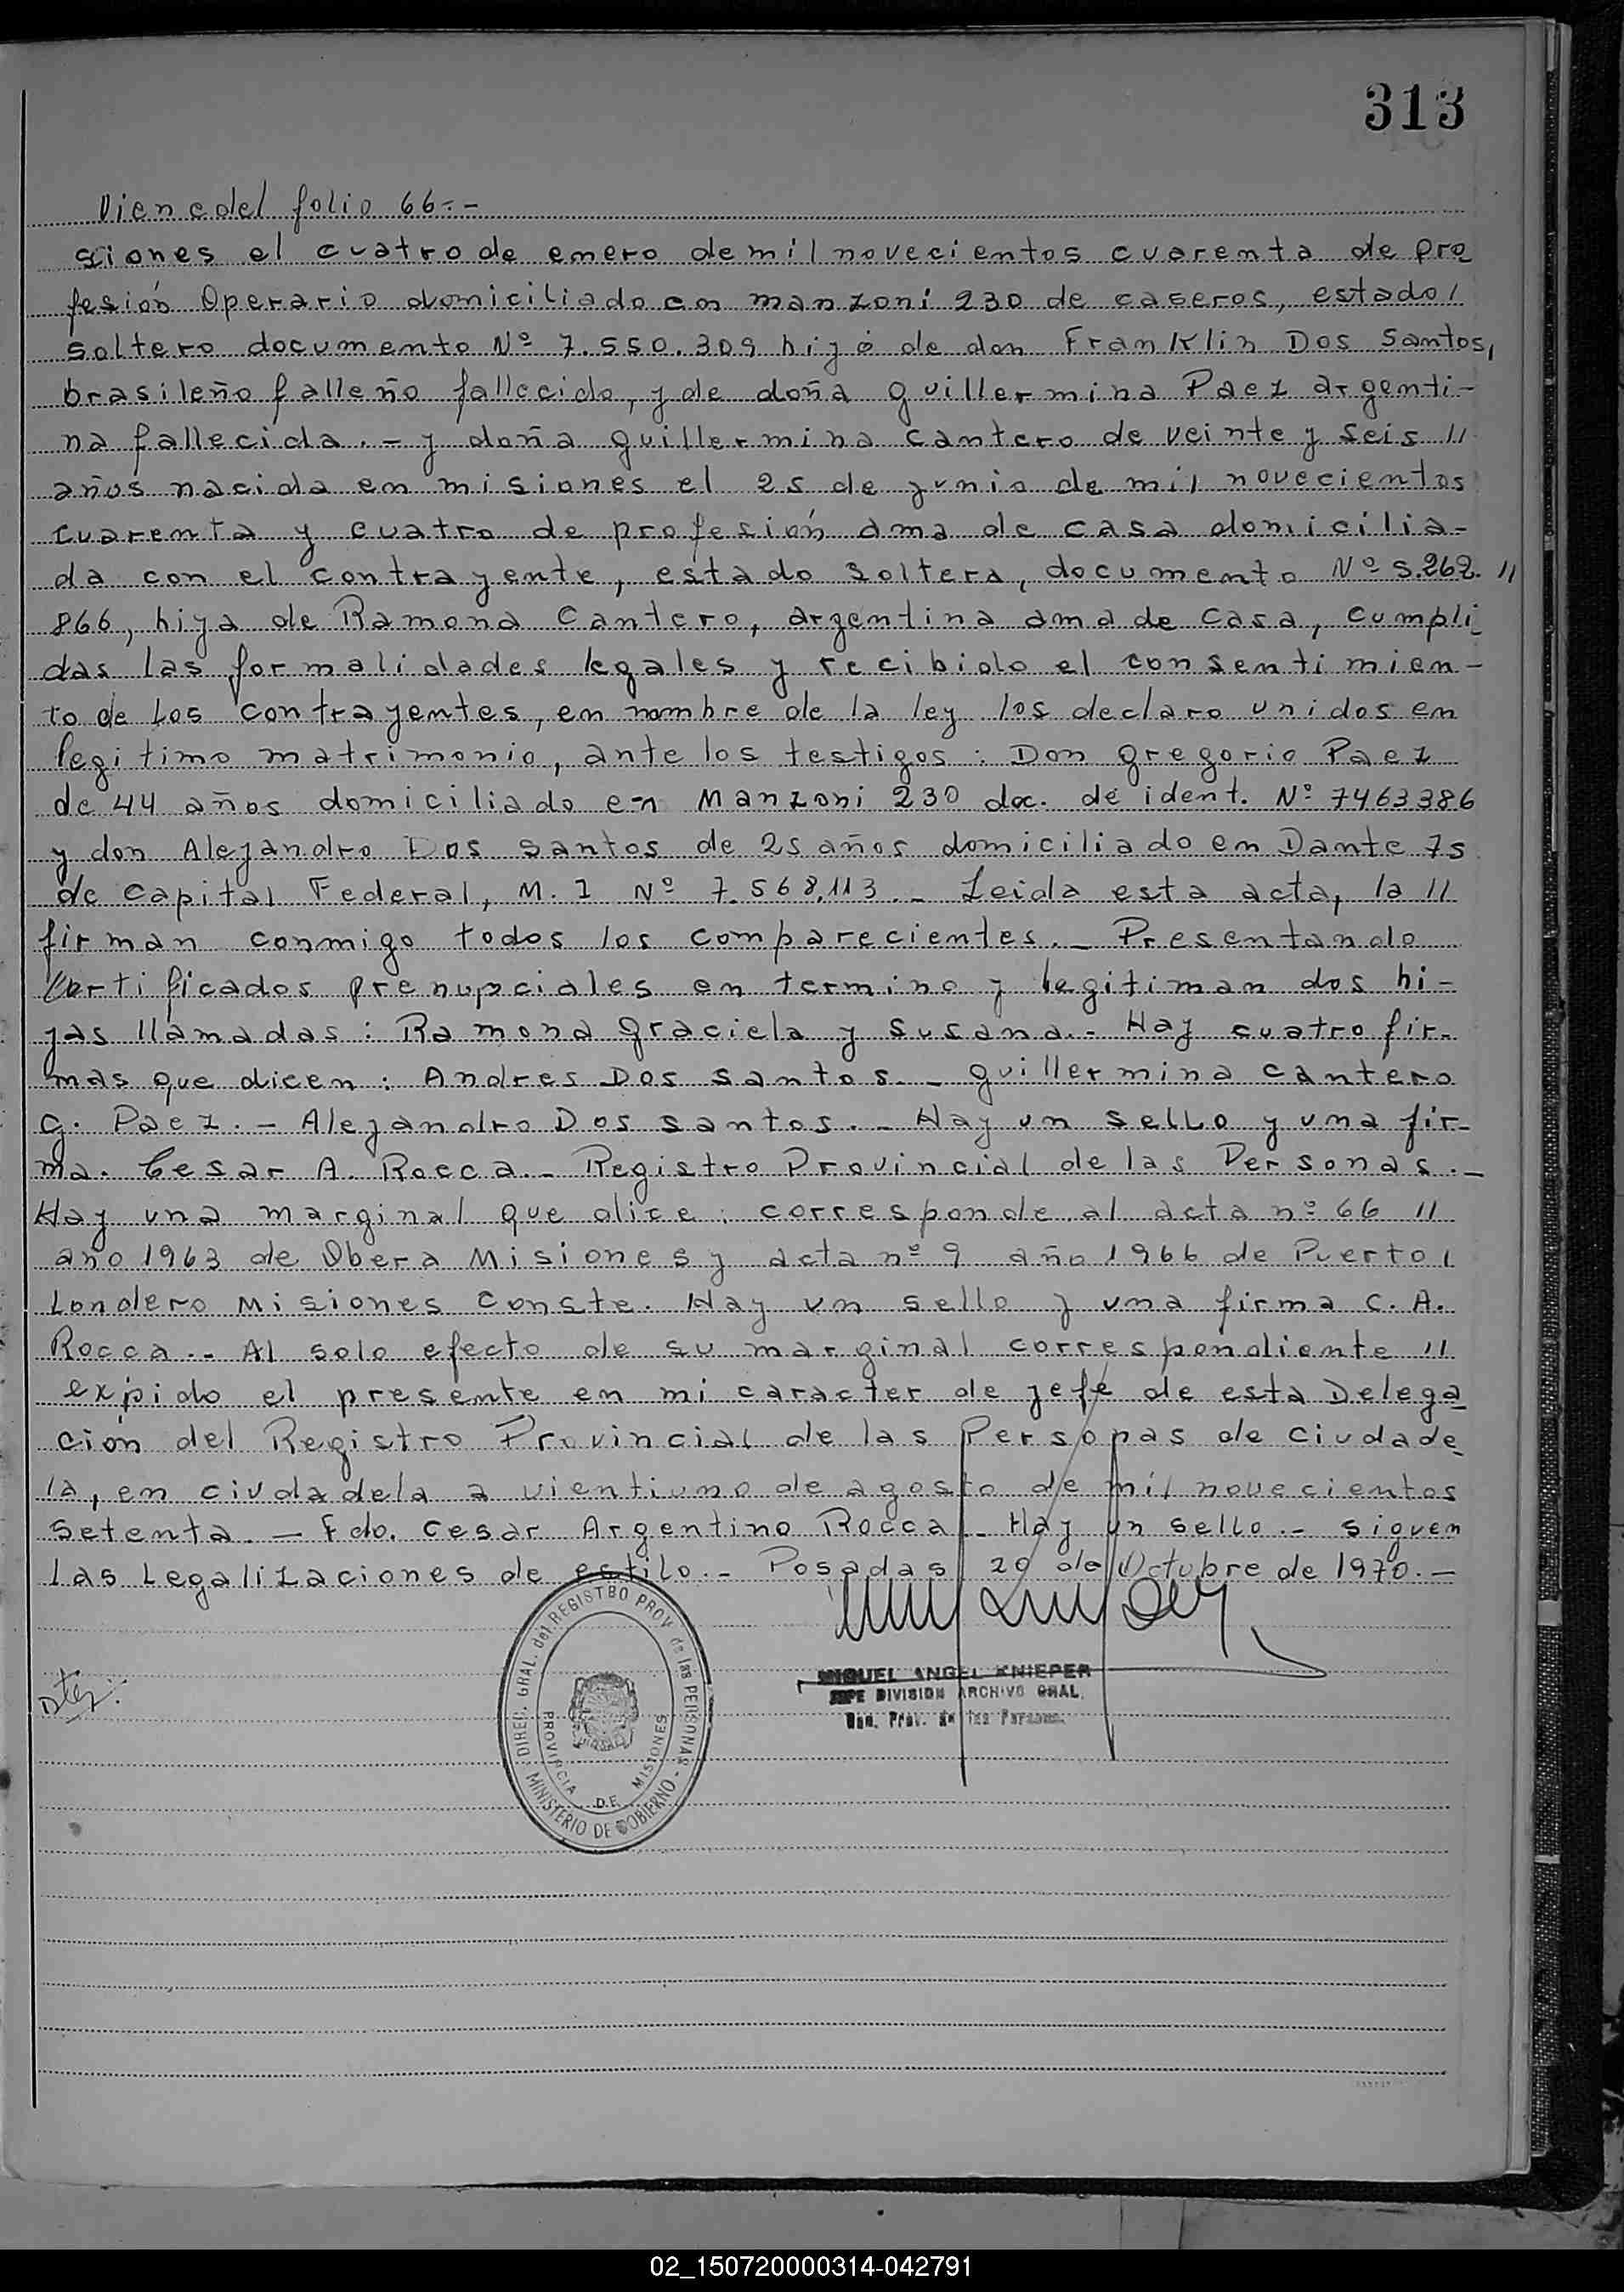 313
Viene del folio 66.-
siones el cuatro de enero de mil novecientos cuarenta de pro
fesión Operario domiciliado en manzoni 230 de caseros, estado/
soltero documento Nº 7.550.309 hijo de don Franklin Dos Santos,
brasileño falleño fallecido, y de doña guillermina Paez argenti-
na fallecida.- y doña guillermina cantero de veinte y seis //
años nacida en misiones el 25 de junio de mil novecientos
cuarenta y cuatro de profesión ama de casa domicilia-
da con el contrayente, estado soltera, documento Nº 5.262. //
866, hija de Ramona Cantero, argentina ama de casa, cumpli_
das las formalidades legales y recibido el consentimien-
to de los contrayentes, en nombre de la ley los declaro unidos en
legitimo matrimonio, ante los testigos: Don gregorio Paez
de 44 años domiciliado en Manzoni 230 doc. de ident. Nº 7463386
y don Alejandro Dos santos de 25 años domiciliado en Dante 75
de capital Federal, M. I Nº 7.568.113.- Leida esta acta, la //
firman conmigo todos los comparecientes.- Presentando
Certificados prenupciales en termino y legitiman dos hi-
jas llamadas: Ramona graciela y susana.- Hay cuatro fir-
mas que dicen: Andres Dos santos.- guillermina cantero
G. Paez.- Alejandro Dos santos.- Hay un sello y una fir-
ma. Cesar A. Rocca.- Registro Provincial de las Personas.-
Hay una marginal que dice: corresponde al acta nº 66 //
año 1963 de Obera Misiones y acta nº 9 año 1966 de Puerto/
Londero Misiones conste. Hay un sello y una firma C. A.
Rocca.- Al solo efecto de su marginal correspondiente //
expido el presente en mi caracter de jefe de esta Delega
ción del Registro Provincial de las Personas de ciudade_
la, en ciudadela a vientiuno de agosto de mil novecientos
setenta.- Fdo. Cesar Argentino Rocca.- Hay un sello.- siguen
las Legalizaciones de estilo.- Posadas, 20 de Octubre de 1970.-
DIREC. GRAL. del REGISTRO PROV. de las PERSONAS
MINISTERIO DE GOBIERNO
PROVINCIA DE MISIONES
MIGUEL ANGEL KNIEPER
JEFE DIVISION ARCHIVO GRAL.
Prov. de las Personas
02_150720000314-042791